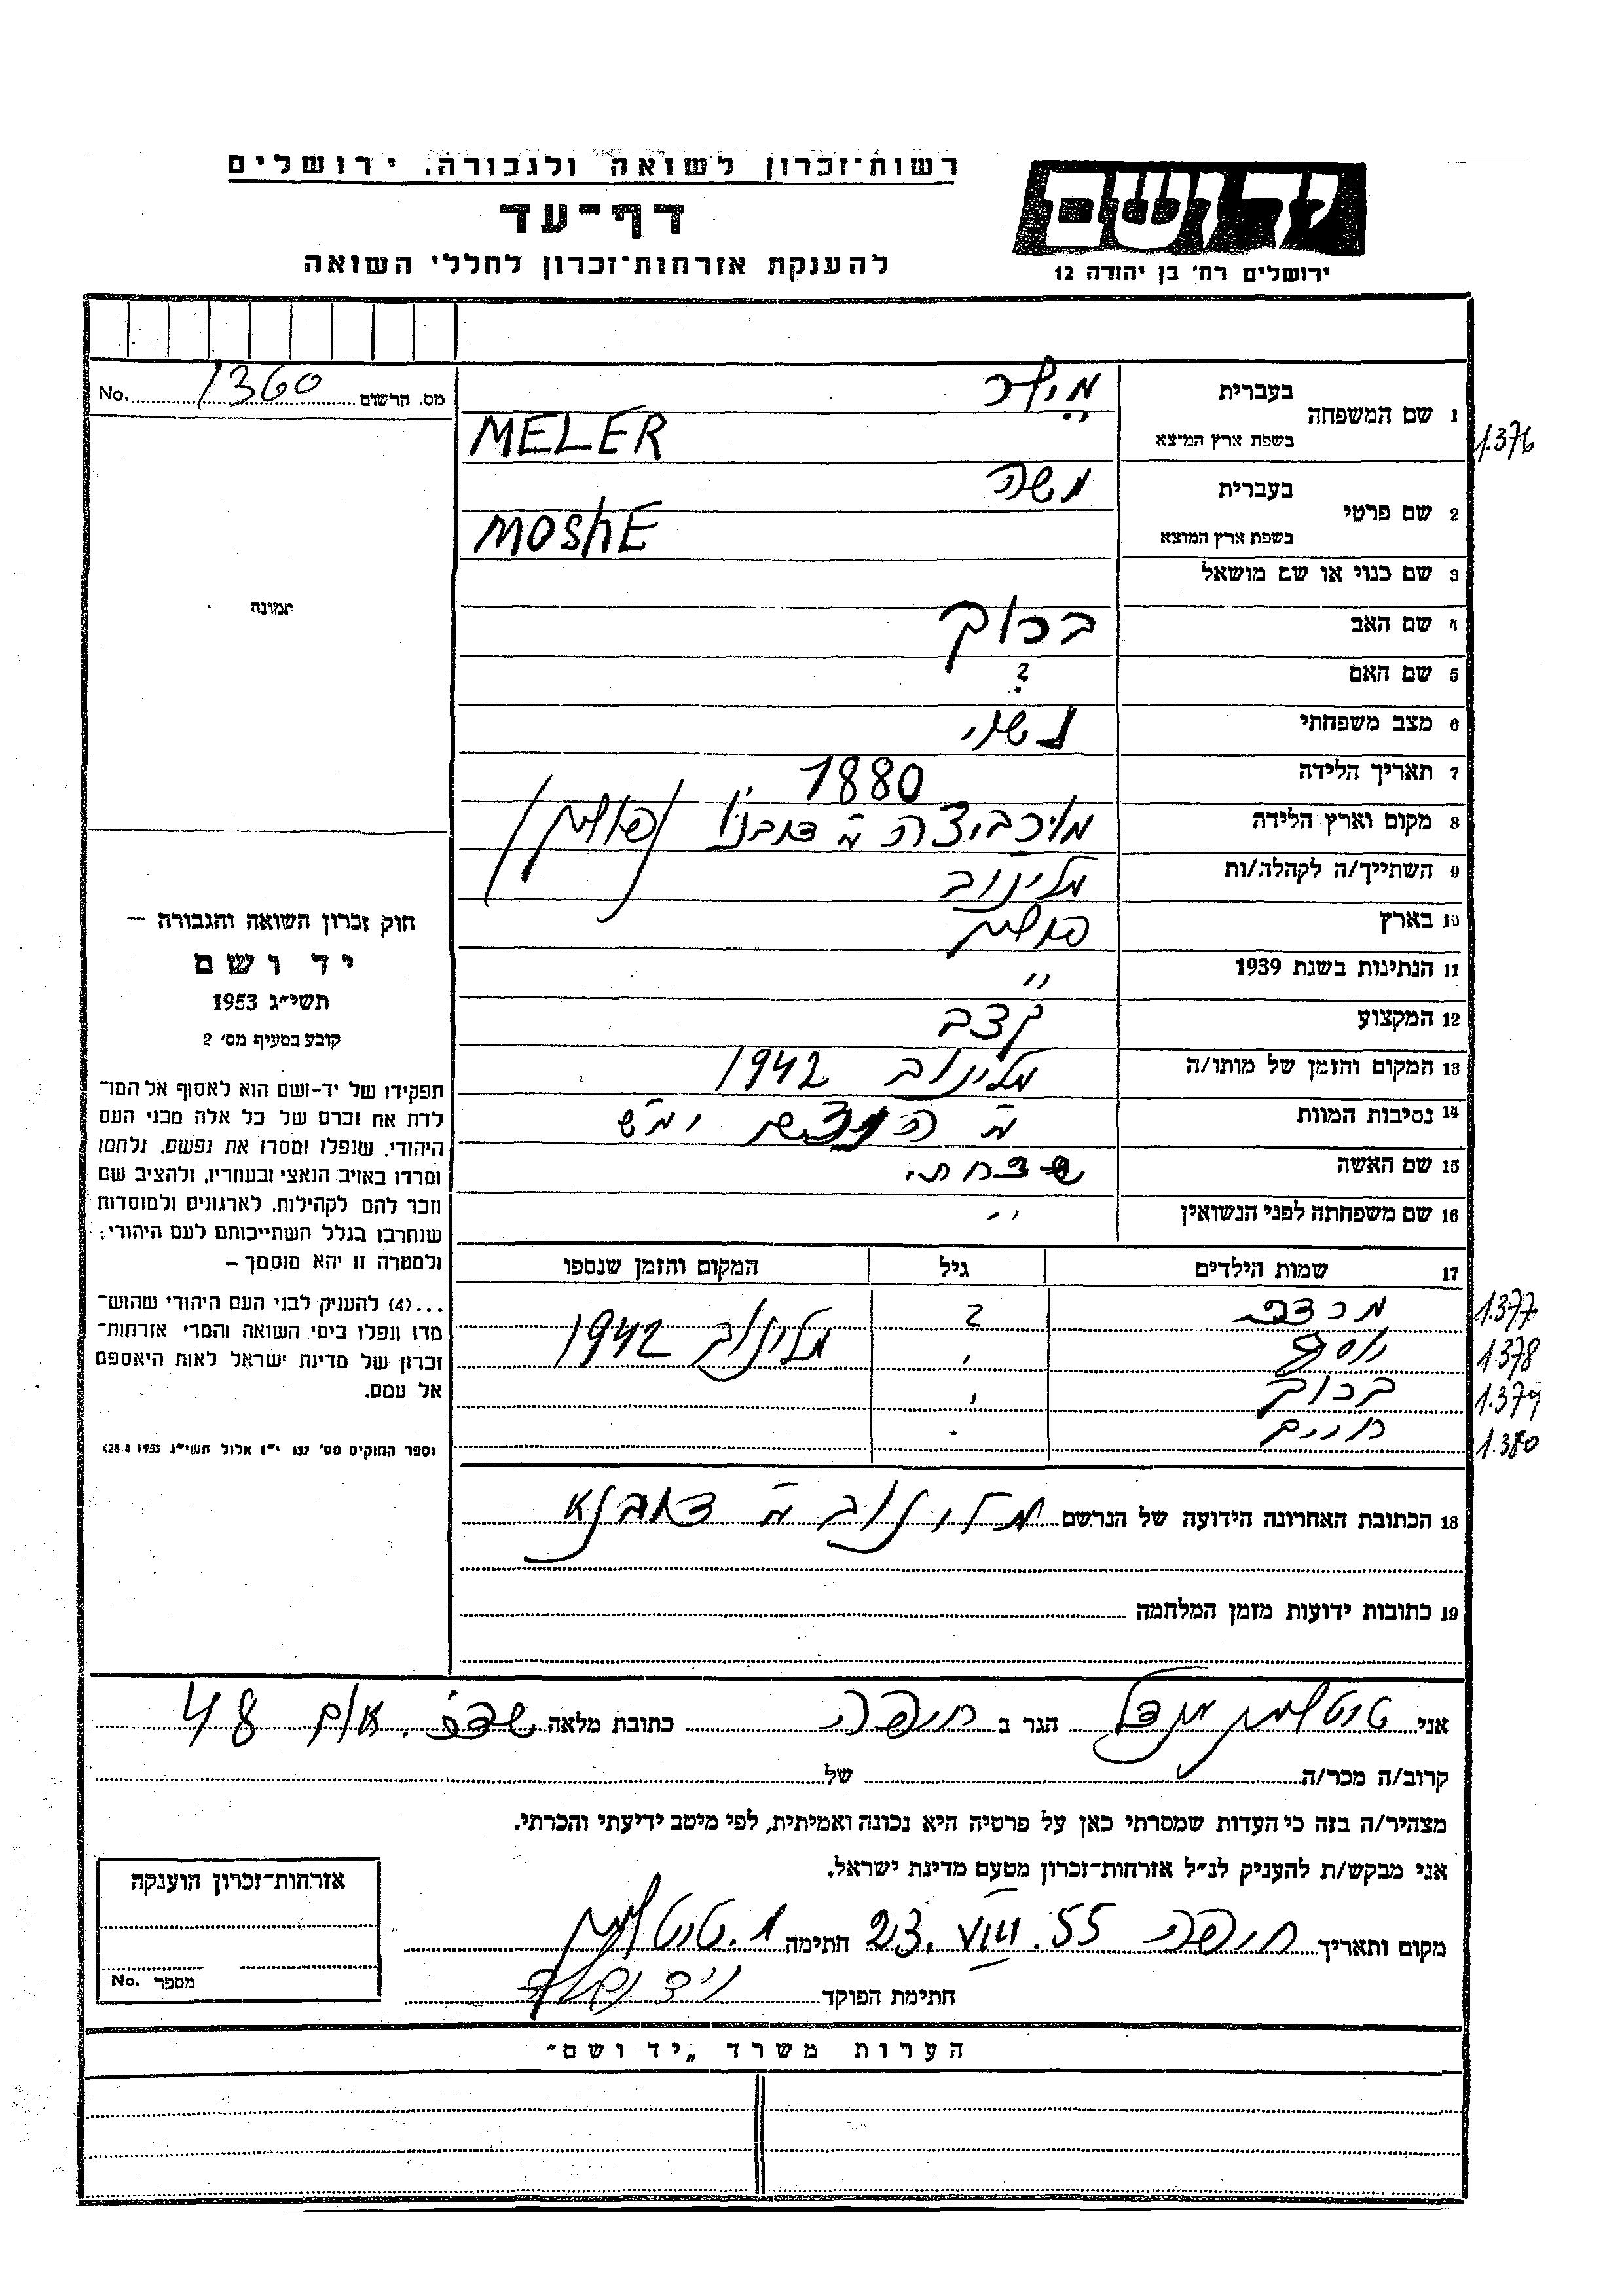 רשות־זכרון לשואה ולגבורה. ירושלים
דף־עד
להענקת אזרחות־זכרון לחללי השואה
יד ושם
ירושלים רח' בן יהודה 12
מס. הרשום 1360 No.
1 שם המשפחה
בעברית מילר
בשפת ארץ המוצא MELER
1.376
2 שם פרטי
בעברית משה
בשפת ארץ המוצא MOSHE
3 שם כנוי או שם מושאל
4 שם האב ברוך
5 שם האם ?
6 מצב משפחתי נשוי
7 תאריך הלידה 1880
8 מקום וארץ הלידה (פולין)
9 השתייך/ה לקהלה/ות מלינוב
10 בארץ פולין
11 הנתינות בשנת 1939 "
12 המקצוע קצב
13 המקום והזמן של מותו/ה מלינוב 1942
14 נסיבות המוות ימ"ש
15 שם האשה
16 שם משפחתה לפני הנשואין
17 שמות הילדים גיל המקום והזמן שנספו
? מלינוב 1942 1.377
1.378
ברוך 1.379
חיים 1.380
תמונה
חוק זכרון השואה והגבורה —
יד ושם
תשי"ג 1953
קובע בסעיף מס' 2
תפקידו של יד-ושם הוא לאסוף אל המו־
לדת את זכרם של כל אלה מבני העם
היהודי, שנפלו ומסרו את נפשם, נלחמו
ומרדו באויב הנאצי ובעוזריו, ולהציב שם
וזכר להם לקהילות, לארגונים ולמוסדות
שנחרבו בגלל השתייכותם לעם היהודי;
ולמטרה זו יהא מוסמך —
...(4) להעניק לבני העם היהודי שהוש־
מדו ונפלו בימי השואה והמרי אזרחות־
זכרון של מדינת ישראל לאות היאספם
אל עמם.
(ספר החוקים מס' 132 י"ז אלול תשי"ג 28.8.1953)
18 הכתובת האחרונה הידועה של הנרשם מלינוב
19 כתובות ידועות מזמן המלחמה
אני טייטלמן מנדל הגר ב חיפה כתובת מלאה 48
קרוב/ה מכר/ה של
מצהיר/ה בזה כי העדות שמסרתי כאן על פרטיה היא נכונה ואמיתית, לפי מיטב ידיעתי והכרתי.
אני מבקש/ת להעניק לנ"ל אזרחות־זכרון מטעם מדינת ישראל.
מקום ותאריך חיפה 23.VIII.55 חתימה טייטלמן
חתימת הפוקד
אזרחות־זכרון הוענקה
מספר No.
הערות משרד „יד ושם"